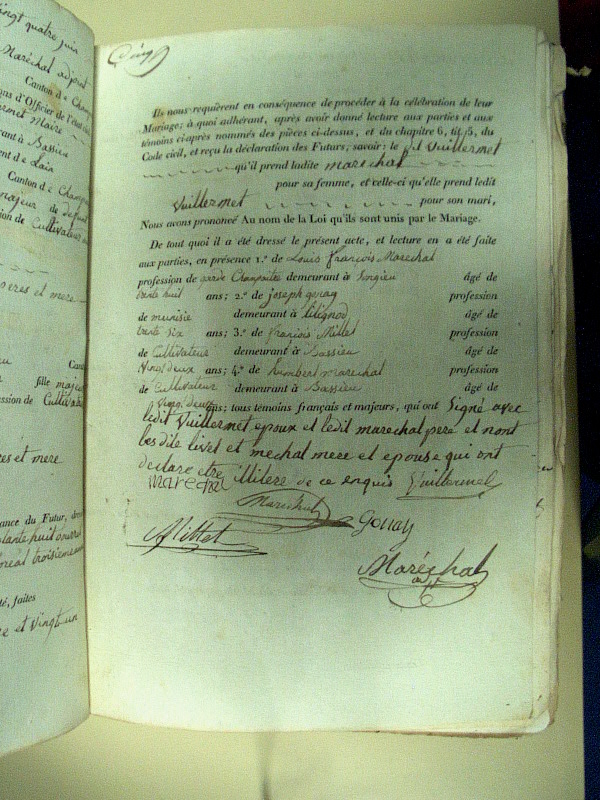 ingt quatre juin
Maréchal adjoint
Canton de Champ
ons d'Officier de l'état
Maire
urant à Bassieu
ent de Lain
Canton de Champ
majeur de
ion de Cultivateur
peres et mere
Can
fille majeu
ession de Cultiv
res et mere
ance du Futur,
lante huit
réal troisieme
té, faites
re et vingt un
Cinq
Ils nous requièrent en conséquence de procéder à la célébration de leur
Mariage; à quoi adhérant, après avoir donné lecture aux parties et aux
témoins ci-après nommés des pièces ci-dessus, et du chapitre 6, tit. 5, du
Code civil, et reçu la déclaration des Futurs, savoir: le dit Vuillermet
qu'il prend ladite marechal
pour sa femme, et celle-ci qu'elle prend ledit
Vuillermet pour son mari,
Nous avons prononcé Au nom de la Loi qu'ils sont unis par le Mariage.
De tout quoi il a été dressé le présent acte, et lecture en a été faite
aux parties, en présence 1.º de Louis françois Marechal
profession de garde Champaitre demeurant à Songieu âgé de
trente huit ans; 2.º de joseph profession
de demeurant à lilignod âgé de
trente six ans; 3.º de françois Millet profession
de Cultivateur demeurant à Bassieu âgé de
Vingt deux ans; 4.º de humbert marechal profession
de Cultivateur demeurant à Bassieu âgé de
Vingt deux ans; tous témoins français et majeurs, qui ont Signé avec
ledit Vuillermet epoux et ledit marechal pere et nont
les dite et mechal mere et epouse qui ont
declare etre illitere de ce enquis Vuillermet
marechal
Marechal
Gouay
Millet
Maréchal
adjt